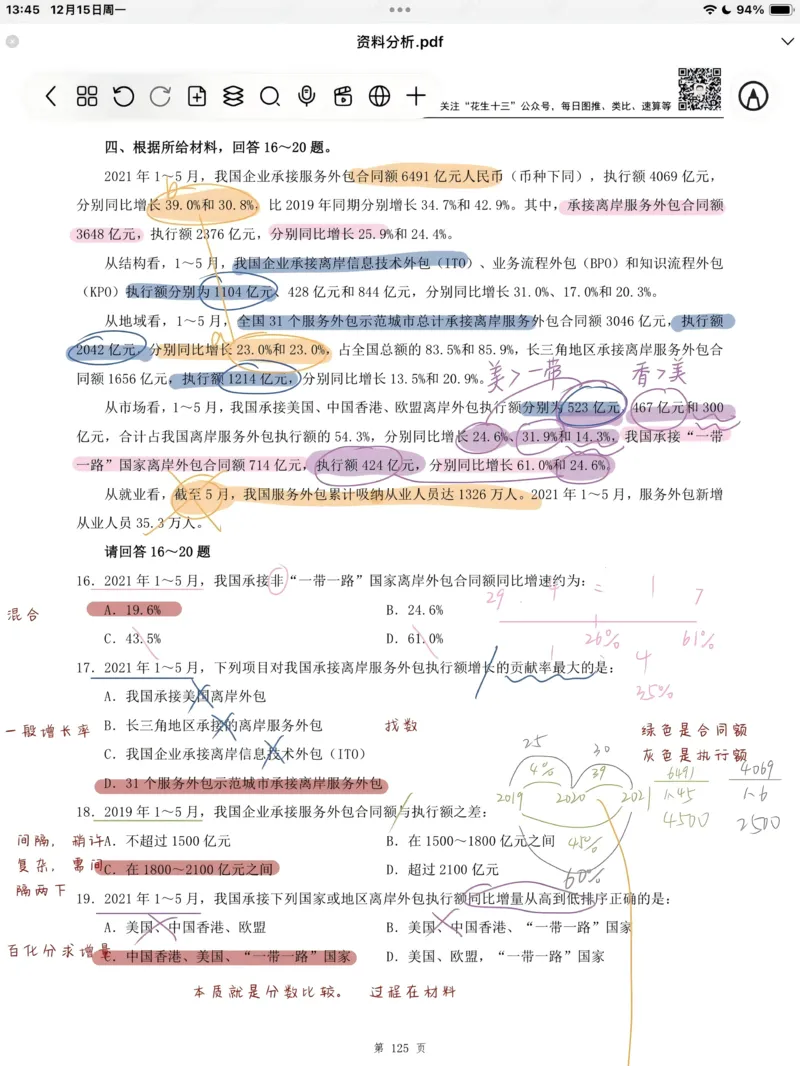 13:45 12月15日周一
94%
资料分析.pdf
关注“花生十三”公众号，每日图推、类比、速算等
四、根据所给材料，回答 16～20 题。
2021 年 1～5 月，我国企业承接服务外包合同额 6491 亿元人民币（币种下同），执行额 4069 亿元，
b
分别同比增长 39.0%和 30.8%，比 2019 年同期分别增长 34.7%和 42.9%。其中，承接离岸服务外包合同额
3648 亿元，执行额 2376 亿元，分别同比增长 25.9%和 24.4%。
从结构看，1～5 月，我国企业承接离岸信息技术外包（ITO）、业务流程外包（BPO）和知识流程外包
（KPO）执行额分别为 1104 亿元、428 亿元和 844 亿元，分别同比增长 31.0%、17.0%和 20.3%。
从地域看，1～5 月，全国 31 个服务外包示范城市总计承接离岸服务外包合同额 3046 亿元，执行额
a
2042 亿元，分别同比增长 23.0%和 23.0%，占全国总额的 83.5%和 85.9%，长三角地区承接离岸服务外包合
同额 1656 亿元，执行额 1214 亿元，分别同比增长 13.5%和 20.9%。
美>一带 香>美
从市场看，1～5 月，我国承接美国、中国香港、欧盟离岸外包执行额分别为 523 亿元、467 亿元和 300
亿元，合计占我国离岸服务外包执行额的 54.3%，分别同比增长 24.6%、31.9%和 14.3%，我国承接“一带
一路”国家离岸外包合同额 714 亿元，执行额 424 亿元，分别同比增长 61.0%和 24.6%。
从就业看，截至 5 月，我国服务外包累计吸纳从业人员达 1326 万人。2021 年 1～5 月，服务外包新增
从业人员 35.3 万人。
请回答 16～20 题
16．2021 年 1～5 月，我国承接非“一带一路”国家离岸外包合同额同比增速约为：
29 : 4 = 1 7
混合
A．19.6% B．24.6%
C．43.5% D．61.0%
26% 61%
1 4
35%
17．2021 年 1～5 月，下列项目对我国承接离岸服务外包执行额增长的贡献率最大的是：
A．我国承接美国离岸外包
一般增长率
B．长三角地区承接的离岸服务外包
找数
绿色是合同额
C．我国企业承接离岸信息技术外包（ITO）
灰色是执行额
D．31 个服务外包示范城市承接离岸服务外包
25 30
4% 39
2019 2020 2021
6491 4069
1.45 1.6
4500 2500
18．2019 年 1～5 月，我国企业承接服务外包合同额与执行额之差：
间隔，稍许
A．不超过 1500 亿元 B．在 1500～1800 亿元之间
45%
复杂，需间
C．在 1800～2100 亿元之间 D．超过 2100 亿元
60%
隔两下
19．2021 年 1～5 月，我国承接下列国家或地区离岸外包执行额同比增量从高到低排序正确的是：
A．美国、中国香港、欧盟 B．美国、中国香港、“一带一路”国家
百化分求增量
C．中国香港、美国、“一带一路”国家 D．美国、欧盟，“一带一路”国家
本质就是分数比较。 过程在材料
第 125 页